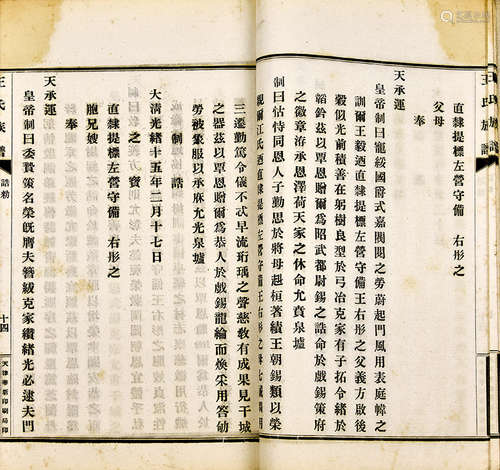 王氏族譜
直隸提標左營守備 右彤之
父母
奉
天承運
皇帝制曰寵綏國爵式嘉閥閱之勞蔚起門風用表庭幃之
訓爾王毅迺直隸提標左營守備王右彤之父義方啟後
穀似光前積善在躬樹良型於弓冶克家有子拓令緒於
韜鈐茲以覃恩贈爾爲昭武都尉錫之誥命於戲錫策府
之徽章洊承恩澤荷天家之休命允賁泉壚
制曰怙恃同恩人子勤思於將母赳桓著績王朝錫類以榮
親爾江氏迺直隸提標左營守備王右彤之母七誡嫻明
三遷勤篤令儀不忒早流珩瑀之聲慈教有成果見干城
之器茲以覃恩贈爾爲恭人於戲錫龍綸而煥采用答劬
勞被象服以承庥允光泉壚
制 誥
大清光緒十五年二月十七日
之 寶
直隸提標左營守備 右彤之
胞兄嫂
奉
天承運
皇帝制曰委贄策名榮旣膺夫簪紱克家纘緒光必逮夫門
王氏族譜
誥勅
十四
天津華新印刷局印